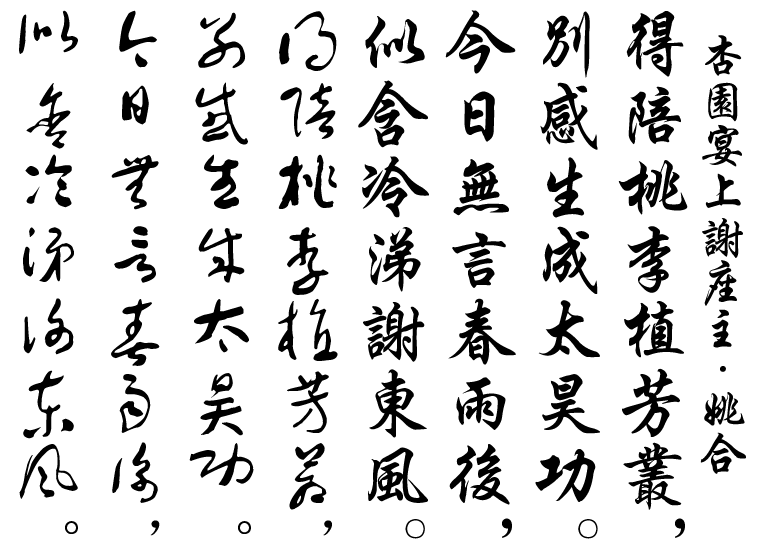 杏園宴上謝座主・姚合
得陪桃李植芳叢，
別感生成太昊功。
今日無言春雨後，
似含冷涕謝東風。
得陪桃李植芳叢，
別感生成太昊功。
今日無言春雨後，
似含冷涕謝東風。